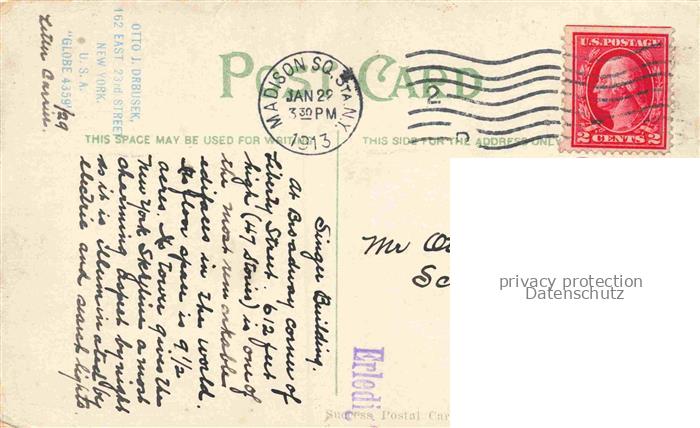 OTTO J. DRBUSEK,
162 EAST 23rd STREET
NEW YORK,
U. S. A.
"GLOBE 4359"
1/29
Letter Carrier.
POST CARD
MADISON SQ. STA. N.Y.
JAN 29
3 30 PM
1913
2
U.S. POSTAGE
2 CENTS 2
THIS SPACE MAY BE USED FOR WRITING
THIS SIDE FOR THE ADDRESS ONLY
Singer Building.
At Broadway corner of
Liberty Street 612 feet
high (47 Stories) is one of
the most remarkable
edifaces in the world.
Its floor space is 9 1/2
acres. Its Tower gives the
New York Skyline a most
charming aspect by night
as it is illuminated by
electric and search lights.
Mr
Erledi
Success Postal Car
privacy protection
Datenschutz